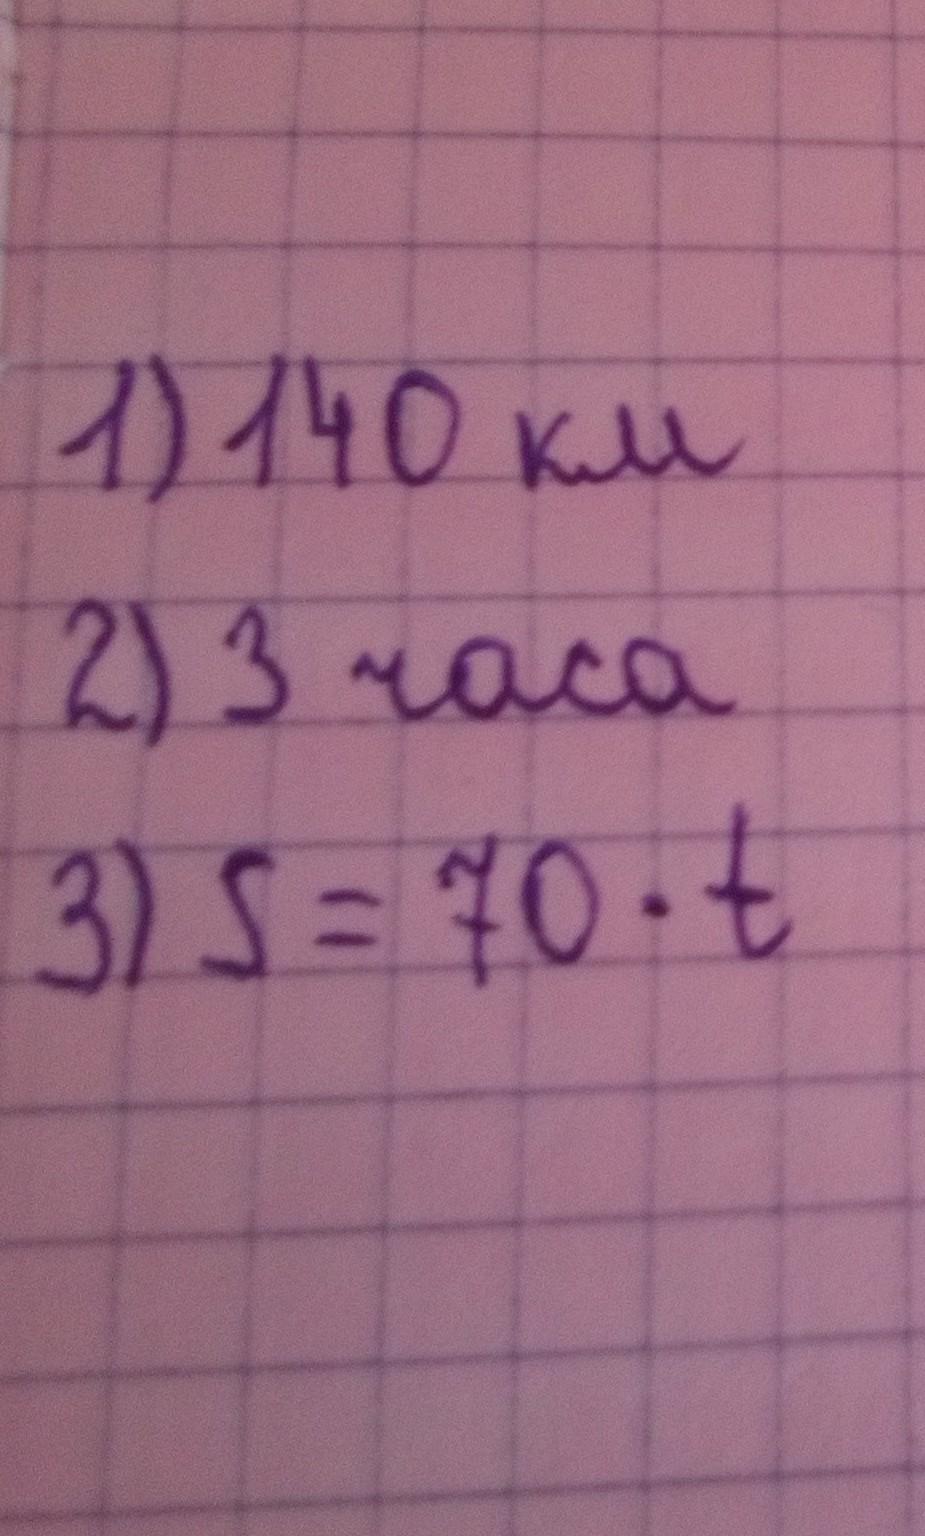 1) 140 км
2) 3 часа
3) S = 70 · t